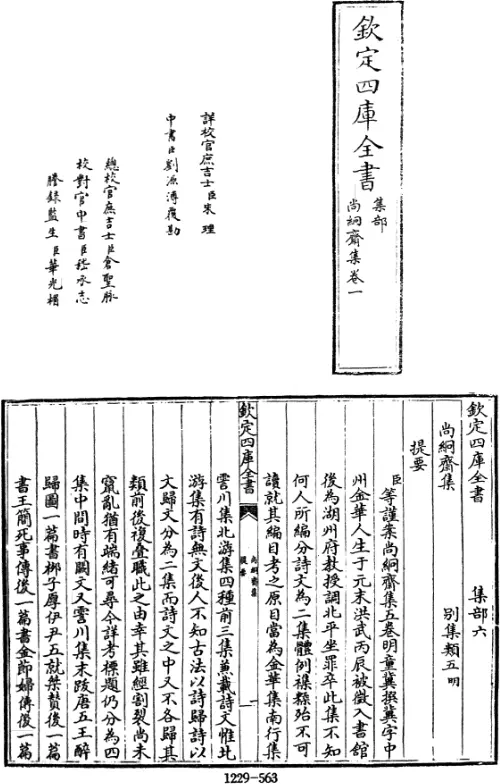 欽定四庫全書
集部
尚絅齋集卷一
詳校官庶吉士臣朱理
中書臣劉源溥覆勘
總校官庶吉士臣倉聖脉
校對官中書臣嵇承志
謄錄監生臣華光楣
欽定四庫全書 集部六
尚絅齋集 別集類五明
提要
臣等謹案尚絅齋集五卷明童冀撰冀字中
州金華人生于元末洪武丙辰被徵入書館
後為湖州府教授調北平坐罪卒此集不知
何人所編分詩文為二集體例糅雜殆不可
讀就其編目考之原目當為金華集南行集
欽定四庫全書
尚絅齋集
提要
一
霅川集北游集四種前三集兼載詩文惟北
游集有詩無文後人不知古法以詩歸詩以
文歸文分為二集而詩文之中又不各歸其
類前後複疊職此之由幸其雖經割裂尚未
竄亂猶有端緒可尋今詳考標題仍分為四
集中間時有闕文又霅川集末跋唐五王醉
歸圖一篇書柳子厚伊尹五就桀贊後一篇
書王簡死事傳後一篇書金節婦傳後一篇
1229-563